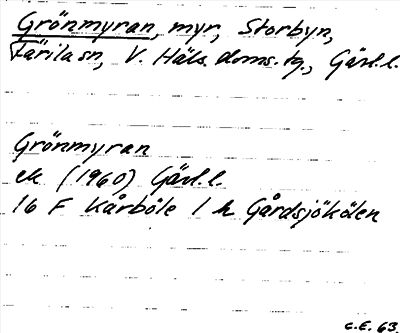 Grönmyran, myr, Storbyn,
Färila sn, V. Häls. doms. tg., Gävl. l.
Grönmyran
ek (1960) Gävl. l.
16 F Kårböle 1 h Gårdsjökölen
C.E. 63